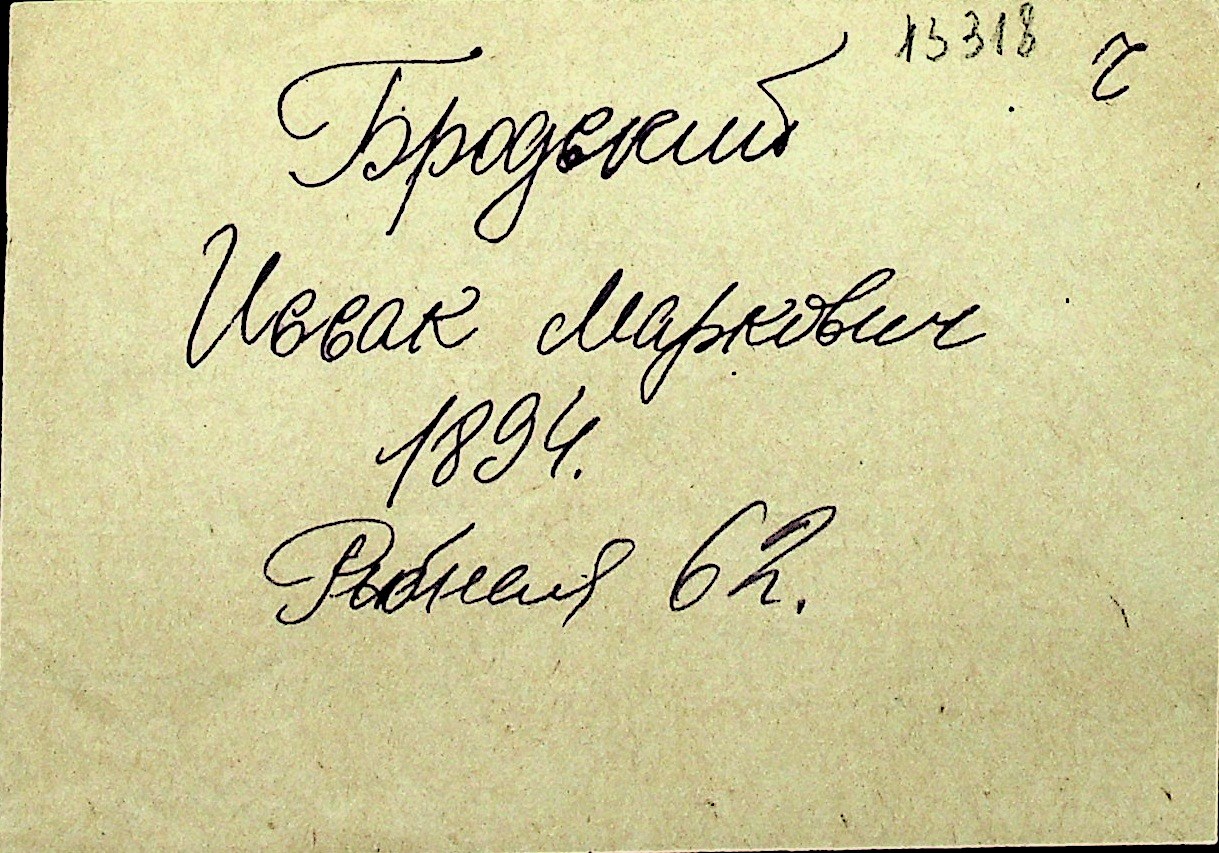 13318 ч
Бродский
Исаак Маркович
1894.
Рыбная 62.